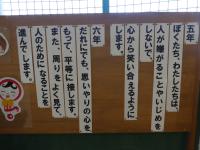 五年
ぼくたち、わたしたちは、
人が嫌がることやいじめを
しないで、
心から笑い合えるように
します。
六年
だれにでも、思いやりの心を
もって、平等に接します。
また、周りをよく見て、
人のためになることを
進んでします。